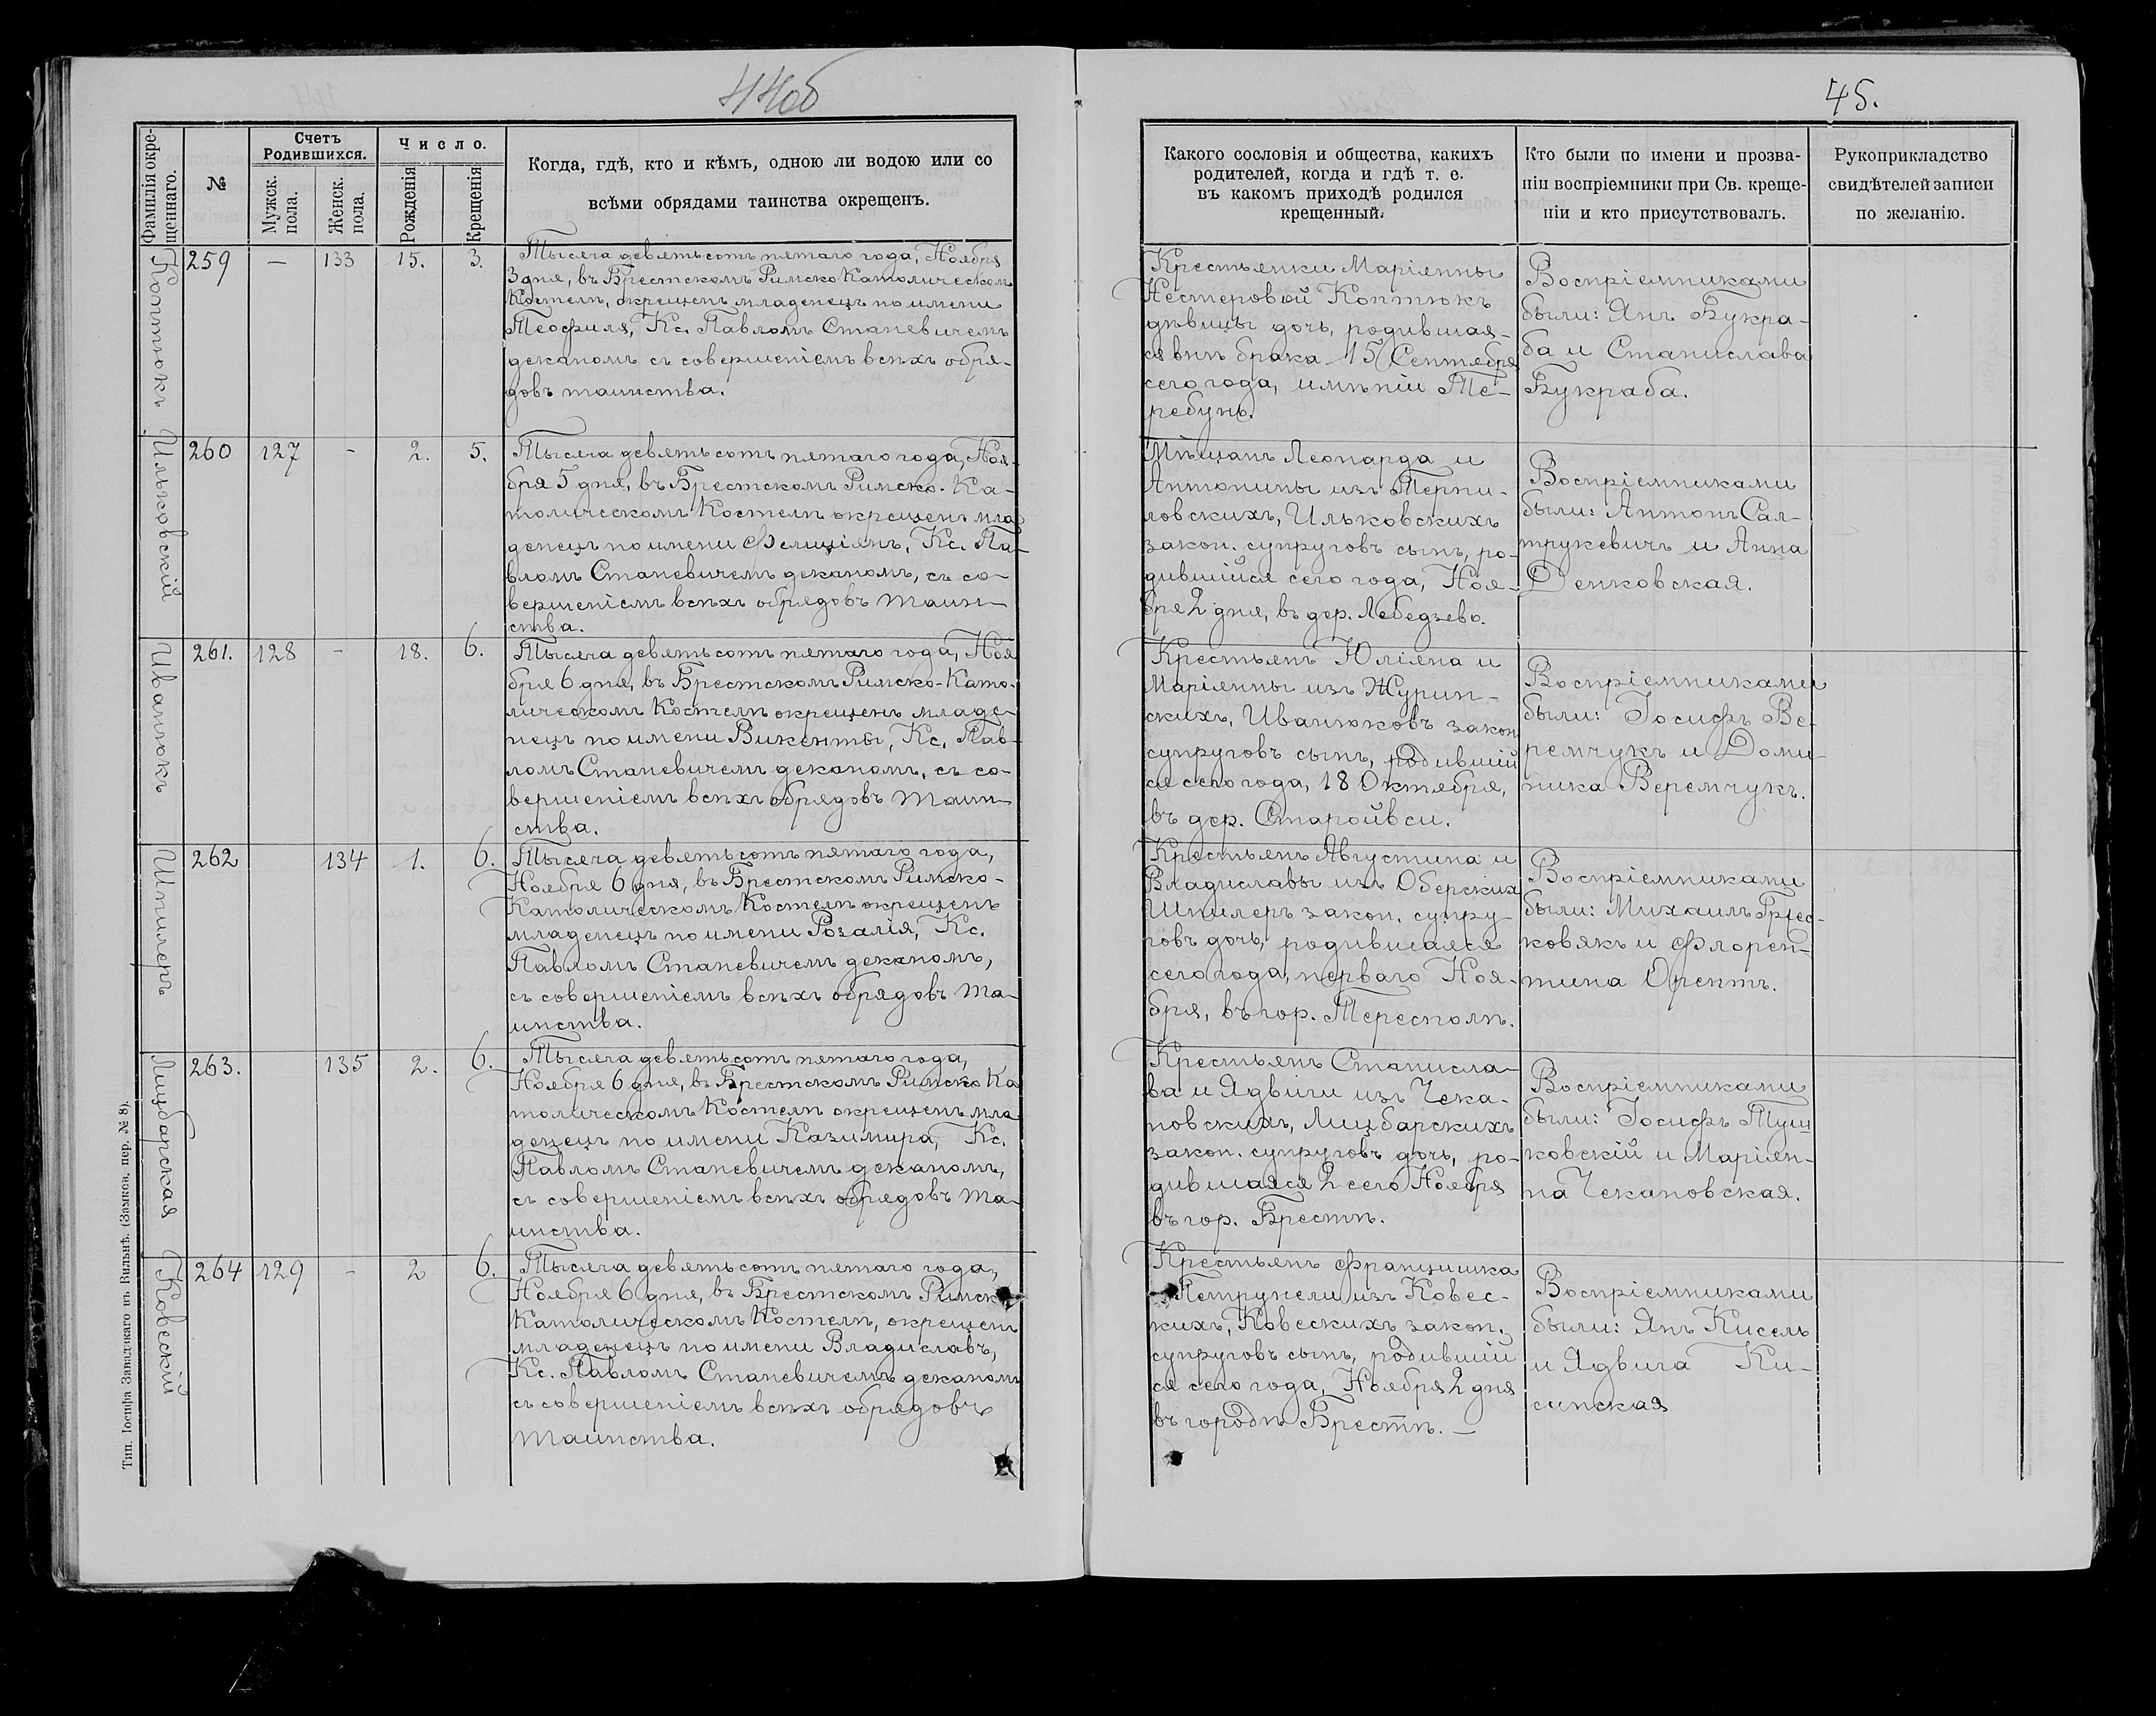 44об
45.
Фамилія окре-
щеннаго.
№
Счетъ
Родившихся.
Мужск.
пола.
Женск.
пола.
Число.
Рожденія
Крещенія
Когда, гдѣ, кто и кѣмъ, одною ли водою или со
всѣми обрядами таинства окрещенъ.
Какого сословія и общества, какихъ
родителей, когда и гдѣ т. е.
въ какомъ приходѣ родился
крещенный.
Кто были по имени и прозва-
ніи воспріемники при Св. креще-
ніи и кто присутствовалъ.
Рукоприкладство
свидѣтелей записи
по желанію.
Коптюкъ
259 — 133 15. 3.
Тысяча девятьсотъ пятаго года, Ноября
3 дня, въ Брестскомъ Римско Католическомъ
Костелѣ, окрещенъ младенецъ по имени
Теофиля, Кс. Павломъ Станевичемъ
деканомъ съ совершеніемъ всѣхъ обря-
довъ таинства.
Крестьянки Маріянны
Нестеровой Коптюкъ
дѣвицы дочь, родившая-
ся внѣ брака 15 Сентября
сего года, имѣніи Те-
ребунь.
Воспріемниками
были: Янъ Букра-
ба и Станислава
Букраба.
Ильковскій
260 127 - 2. 5.
Тысяча девятьсотъ пятаго года, Ноя-
бря 5 дня, въ Брестскомъ Римско-Ка-
толическомъ Костелѣ окрещенъ мла
денецъ по имени Фелиціянъ, Кс. Па-
вломъ Станевичемъ деканомъ, съ со-
вершеніемъ всѣхъ обрядовъ таин-
ства.
Мѣщанъ Леонарда и
Антонины изъ Терпи-
ловскихъ, Ильковскихъ
закон. супруговъ сынъ, ро-
дившійся сего года, Ноя-
бря 2 дня, въ дер. Лебедзево.
Воспріемниками
были: Антонъ Сал-
трукевичъ и Анна
Денковская.
Иванюкъ
261. 128 - 18. 6.
Тысяча девятьсотъ пятаго года, Ноя
бря 6 дня, въ Брестскомъ Римско-Като-
лическомъ Костелѣ окрещенъ младе-
нецъ по имени Викенты, Кс. Пав-
ломъ Станевичемъ деканомъ, съ со-
вершеніемъ всѣхъ обрядовъ таин-
ства.
Крестьянъ Юліяна и
Маріянны изъ Журин-
скихъ, Иванюковъ закон
супруговъ сынъ, родившій
ся сего года, 18 Октября,
въ дер. Старойвси.
Воспріемниками
были: Іосифъ Ве-
ремчукъ и Доми-
ника Веремчукъ.
Шпилеръ
262 134 1. 6.
Тысяча девятьсотъ пятаго года,
Ноября 6 дня, въ Брестскомъ Римско-
Католическомъ Костелѣ окрещенъ
младенецъ по имени Розалія, Кс.
Павломъ Станевичемъ деканомъ,
съ совершеніемъ всѣхъ обрядовъ та-
инства.
Крестьянъ Августина и
Владиславы изъ Оберскихъ
Шпилеръ закон. супру-
говъ дочь, родившаяся
сего года, перваго Ноя-
бря, въ гор. Тересполѣ.
Воспріемниками
были: Михаилъ
ковякъ и Флорен-
тина Орентъ.
Лицбарская
263. 135 2. 6.
Тысяча девятьсотъ пятаго года,
Ноября 6 дня, въ Брестскомъ Римско Ка
толическомъ Костелѣ окрещенъ мла
денецъ по имени Казимира, Кс.
Павломъ Станевичемъ деканомъ,
съ совершеніемъ всѣхъ обрядовъ та-
инства.
Крестьянъ Станисла-
ва и Ядвиги изъ Чека-
новскихъ, Лицбарскихъ
закон. супруговъ дочь, ро-
дившаяся 2 сего Ноября
въ гор. Брестѣ.
Воспріемниками
были: Іосифъ Туш
ковскій и Маріян-
на Чекановская.
Ковескій
264 129 - 2 6.
Тысяча девятьсотъ пятаго года,
Ноября 6 дня, въ Брестскомъ Римско
Католическомъ Костелѣ, окрещенъ
младенецъ по имени Владиславъ,
Кс. Павломъ Станевичемъ деканомъ
съ совершеніемъ всѣхъ обрядовъ
таинства.
Крестьянъ Францишка
Петрунели изъ Ковес-
кихъ, Ковескихъ закон.
супруговъ сынъ, родившій
ся сего года, Ноября 2 дня
въ городѣ Брестѣ. —
Воспріемниками
были: Янъ Кисель
и Ядвига Ки-
синская
Тип. Іосифа Завадзкаго въ Вильнѣ. (Замков. пер. № 8).